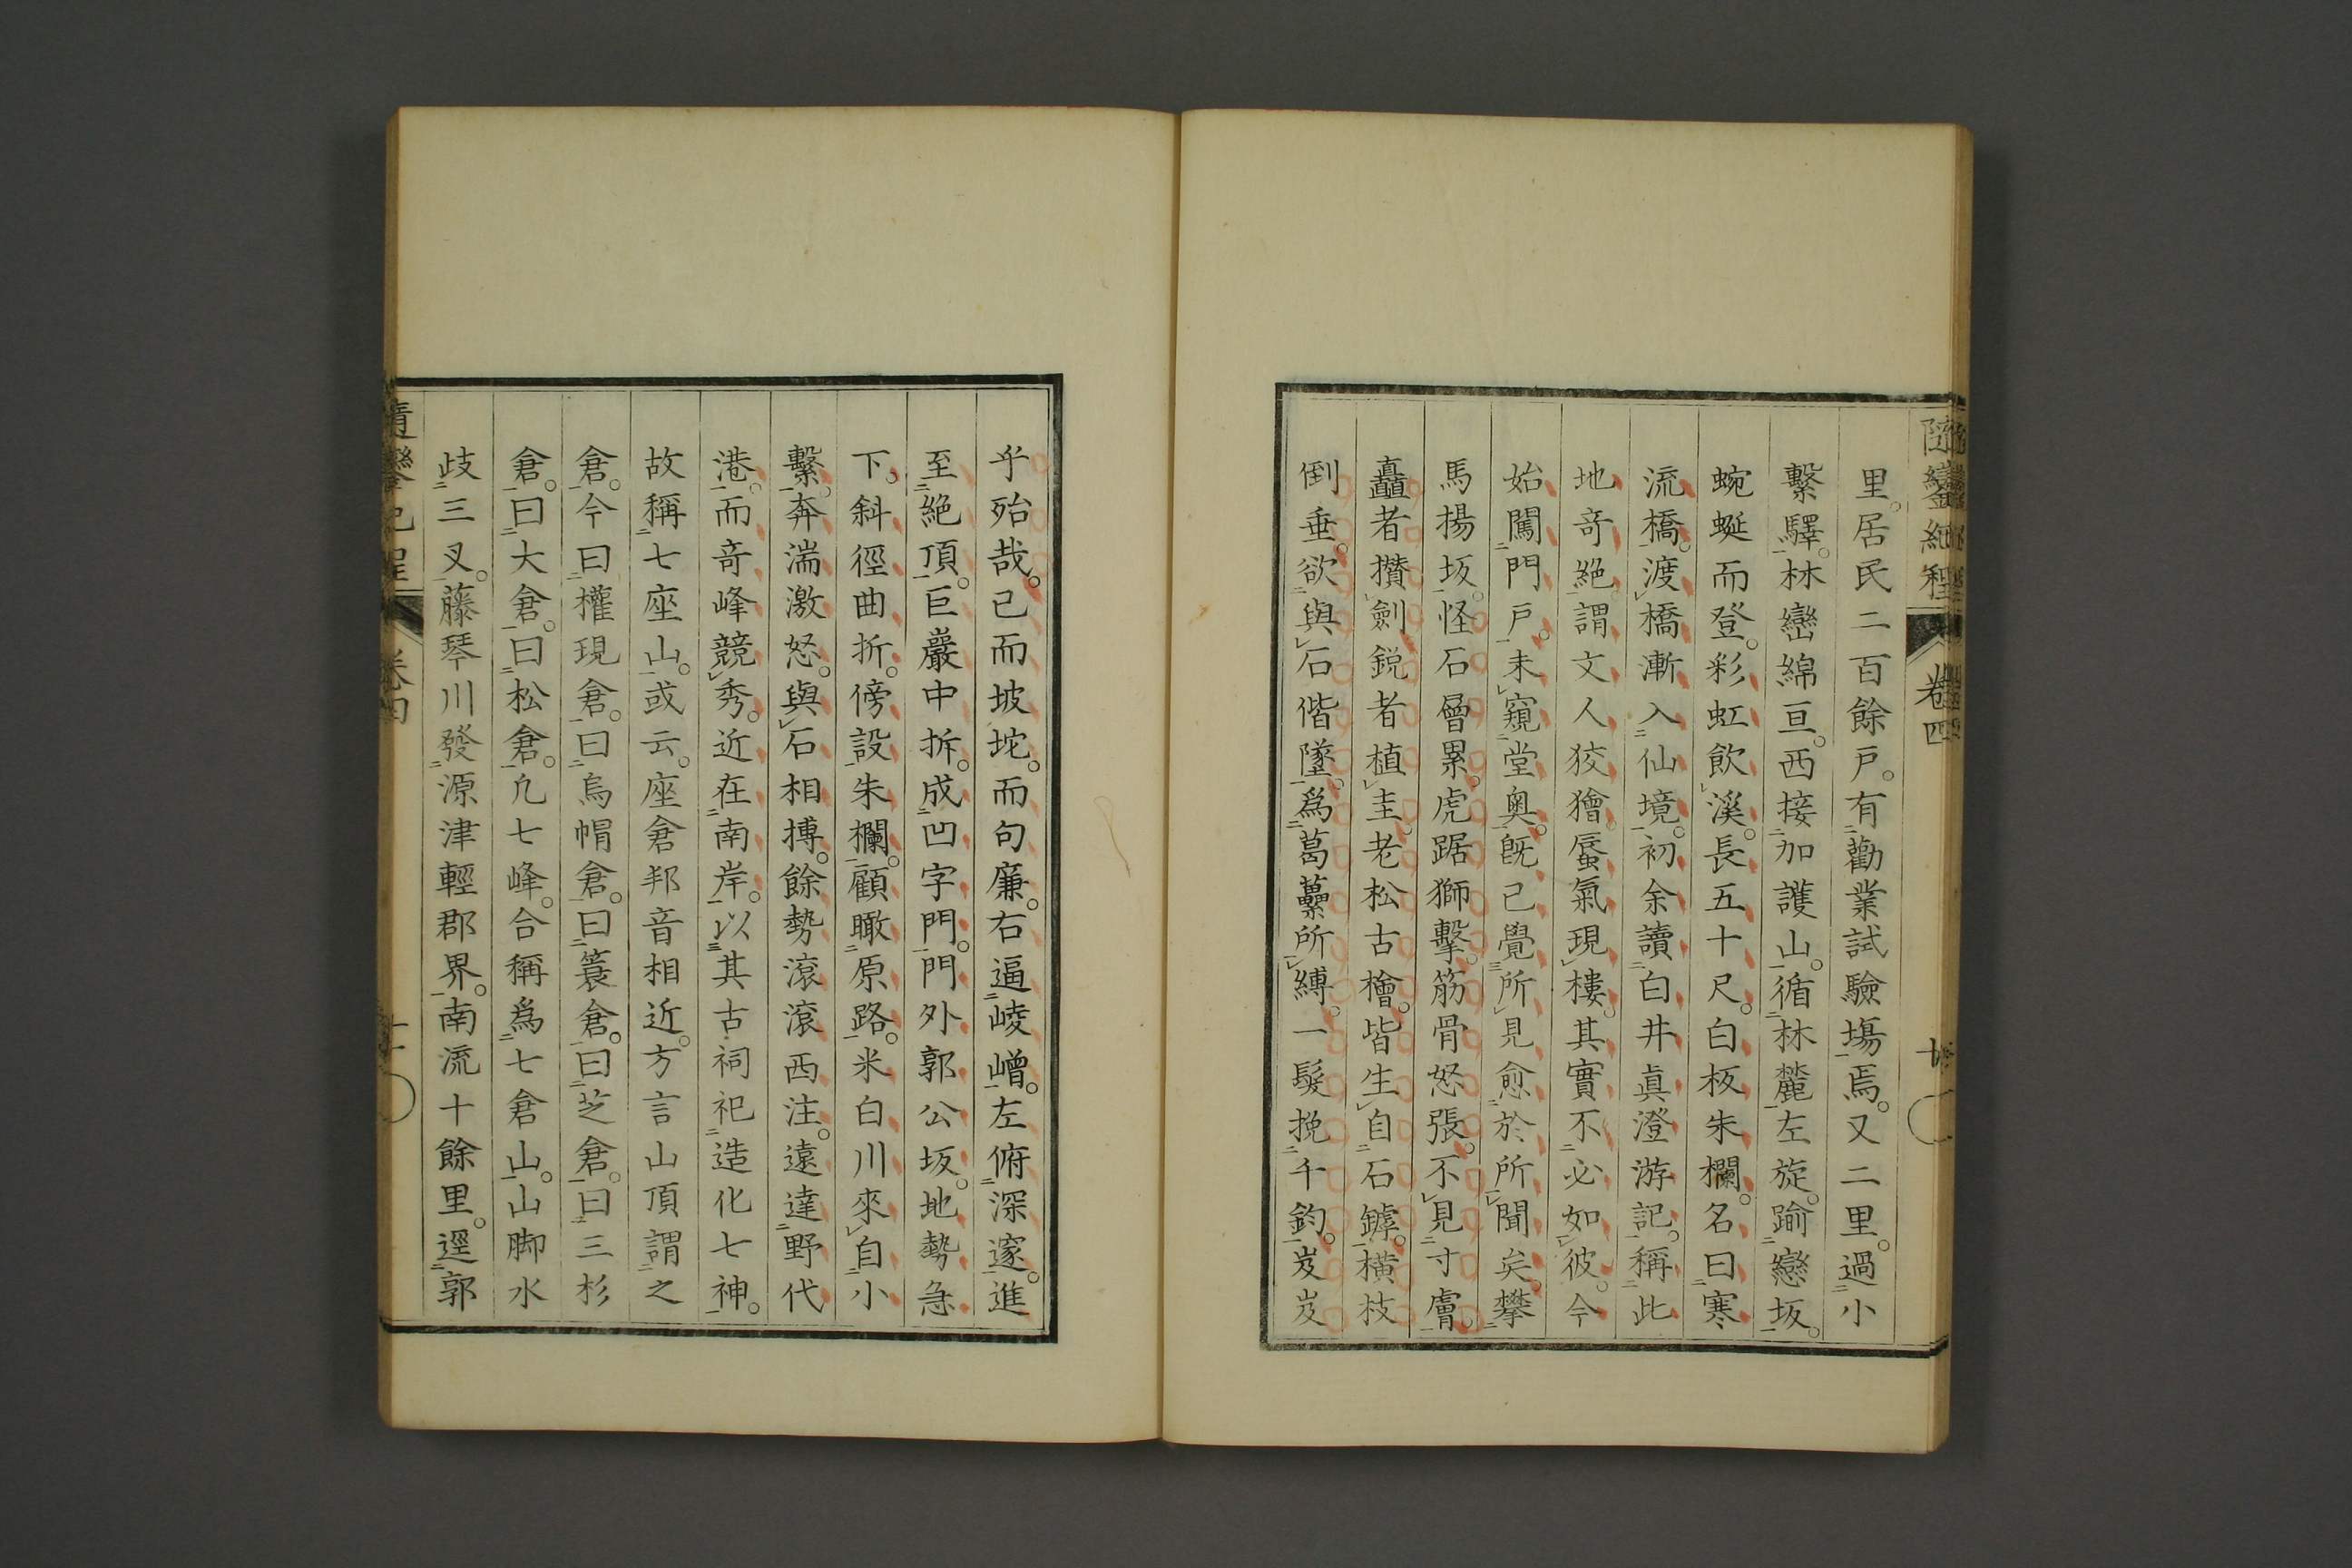 隨鑾紀程 卷四
里。居民二百餘戶。有勸業試驗場焉。又二里。過小
繫驛。林巒綿亘。西接加護山。循林麓左旋。踰戀坂。
蜿蜒而登。彩虹飲溪。長五十尺。白板朱欄。名曰寒
流橋。渡橋漸入仙境。初余讀白井眞澄游記。稱此
地奇絕。謂文人狡獪。蜃氣現樓。其實不必如彼。今
始闖門戶。未窺堂奧。既已覺所見愈於所聞矣。攀
馬揚坂。怪石層累。虎踞獅擊。筋骨怒張。不見寸膚。
矗者攢劍。銳者植圭。老松古檜。皆生自石罅。橫枝
倒垂。欲與石偕墜。爲葛虆所縛。一髮挽千鈞。岌岌
乎殆哉。已而坡坨。而句廉。右逼崚嶒。左俯深邃。進
至絕頂。巨巖中拆。成凹字門。門外郭公坂。地勢急
下。斜徑曲折。傍設朱欄。顧瞰原路。米白川來自小
繫。奔湍激怒。與石相搏。餘勢滾滾西注。遠達野代
港。而奇峰競秀。近在南岸。以其古祠祀造化七神。
故稱七座山。或云。座倉邦音相近。方言山頂謂之
倉。今曰權現倉。曰烏帽倉。曰簑倉。曰芝倉。曰三杉
倉。曰大倉。曰松倉。凡七峰。合稱爲七倉山。山脚水
歧三叉。藤琴川發源津輕郡界。南流十餘里。逕郭
卷四